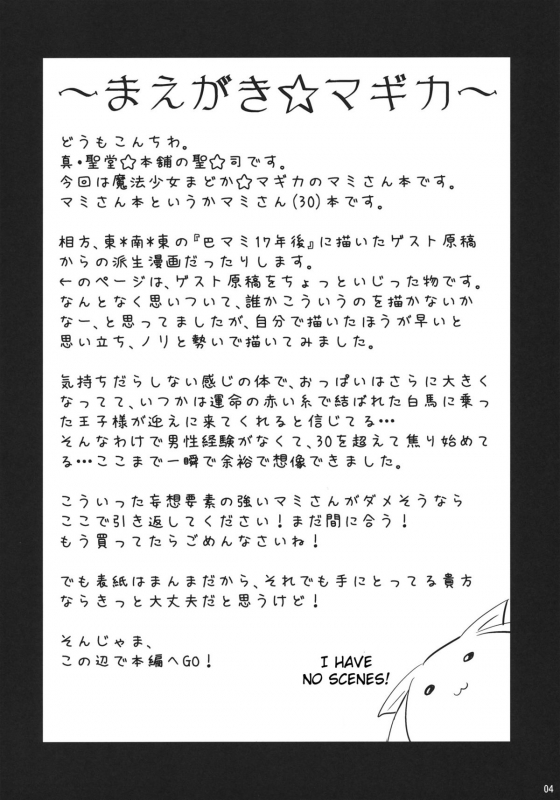 ～まえがき☆マギカ～
どうもこんちわ。
真・聖堂☆本舗の聖☆司です。
今回は魔法少女まどか☆マギカのマミさん本です。
マミさん本というかマミさん(30)本です。
相方、東*南*東の『巴マミ17年後』に描いたゲスト原稿
からの派生漫画だったりします。
←のページは、ゲスト原稿をちょっといじった物です。
なんとなく思いついて、誰かこういうのを描かないか
なー、と思ってましたが、自分で描いたほうが早いと
思い立ち、ノリと勢いで描いてみました。
気持ちだらしない感じの体で、おっぱいはさらに大きく
なってて、いつかは運命の赤い糸で結ばれた白馬に乗っ
た王子様が迎えに来てくれると信じてる…
そんなわけで男性経験がなくて、30を超えて焦り始めて
る…ここまで一瞬で余裕で想像できました。
こういった妄想要素の強いマミさんがダメそうなら
ここで引き返してください！まだ間に合う！
もう買ってたらごめんなさいね！
でも表紙はまんまだから、それでも手にとってる貴方
ならきっと大丈夫だと思うけど！
そんじゃま、
この辺で本編へGO！
I HAVE
NO SCENES!
04